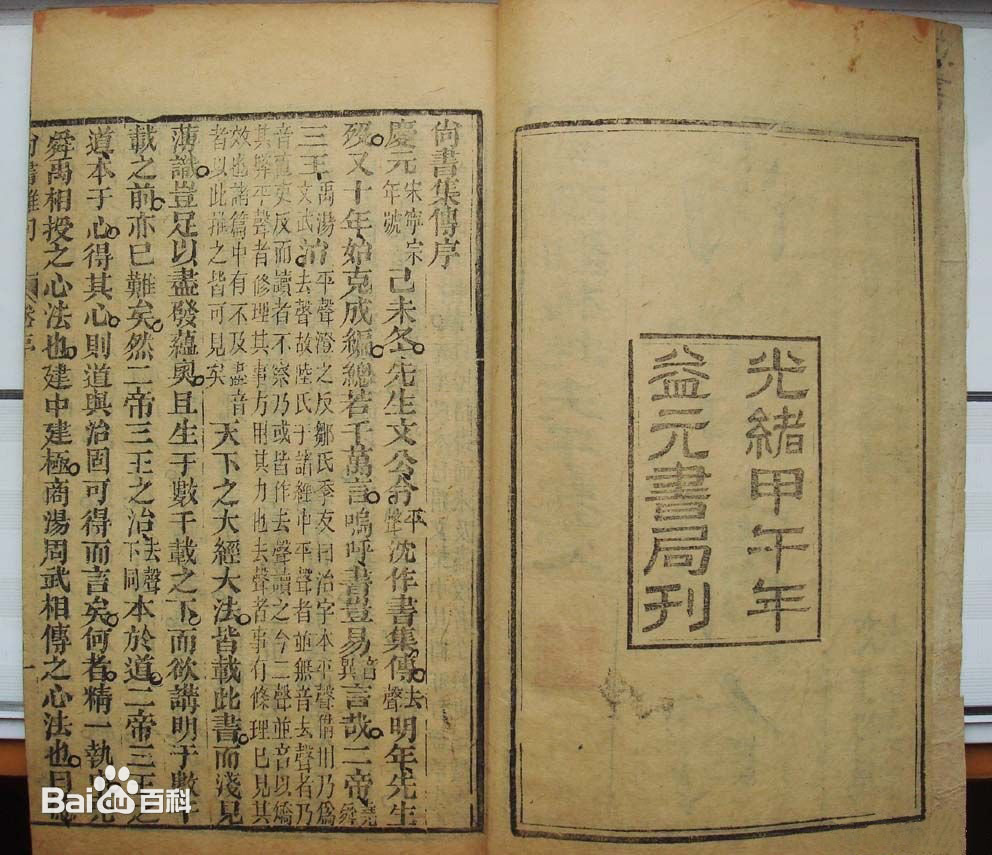 光緒甲午年
益元書局刊
尚書集傳序
慶元宋寧宗年號己未冬先生文公令平聲沈作書集傳去聲明年先生
歿又十年始克成編總若干萬言嗚呼書豈易音異言哉二帝堯舜
三王禹湯文武治平聲澄之反鄒氏季友曰治字本平聲借用乃爲去聲故陸氏于諸經中平聲者並無音去聲者乃
音直吏反而讀者不察乃或皆作去聲讀之今二聲並音以矯其弊平聲者修理其事方用其力也去聲者事有條理已見其
效也諸篇中有不及盡音者以此推之皆可見矣天下之大經大法皆載此書而淺見
薄識豈足以盡發蘊奧且生于數千載之下而欲講明于數千
載之前亦已難矣然二帝三王之治去聲下同本於道二帝三王之
道本于心得其心則道與治固可得而言矣何者精一執中堯
舜禹相授之心法也建中建極商湯周武相傳之心法也曰
Bai百科